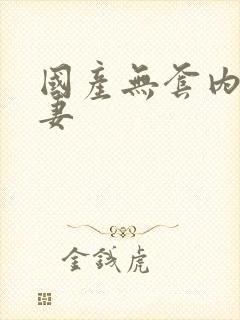 國產無套内
妻
金錢虎